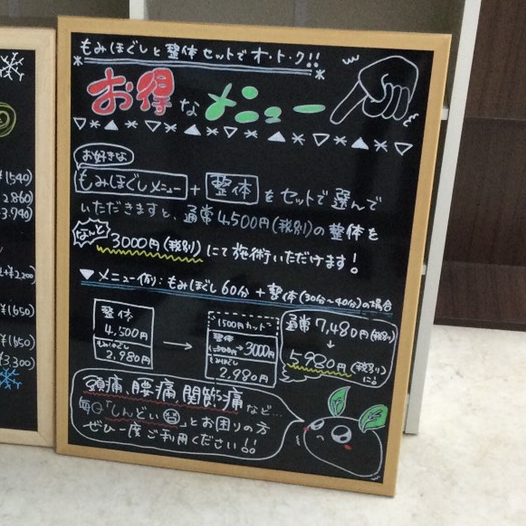 もみほぐしと整体セットでオ・ト・ク!!
お得なメニュー
お好きな
もみほぐしメニュー + 整体 をセットで選んで
いただきますと、通常4,500円(税別)の整体を
なんと
3000円(税別)にて施術いただけます!
▼メニュー例:もみほぐし60分+整体(30分〜40分)の場合
整体
4,500円
もみほぐし
2,980円
→
1500円カット
整体
→3000円
もみほぐし
2,980円
通常7,480円(税別)
↓
5,980円(税別)
に!
頭痛 腰痛 関節痛など…
毎日「しんどい」とお困りの方
ぜひ一度ご利用ください!!
¥1540)
2,860
3,940)
2,200)
¥1650)
¥1650)
¥3,300)